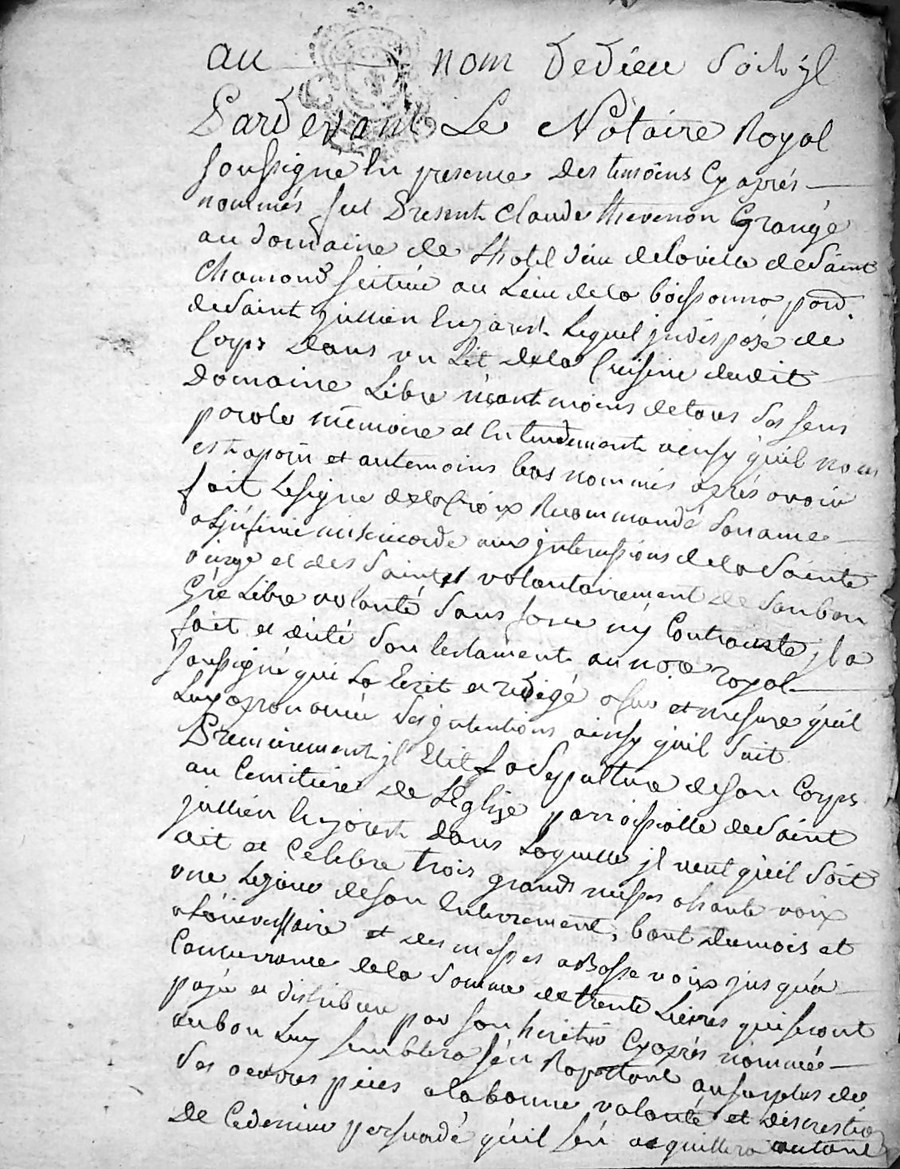 au nom de dieu soit jl
Pardevant Le Notaire Royal
soussigné En presence des temoins Cy aprés
nommés fut Present Claude thevenon Grangé
au domaine de Lhotel dieu de la ville de Saint
Chamond scitüé au Lieu de la boissonna
de Saint jullien En jarest Lequel jndisposé de
Corps dans un Lit de la Cuisine dudit
domaine Libre néant moins de tous Ses sens
parole mémoire et Entendement ainsy qu'il nous
est aparu et au temoins bas nommés aprés avoir
fait Le signe de la Croix Recommandé Son ame
misericorde aux jntercessions de la Sainte
vierge et des Saints volontairement de Son bon
Gré Libre volonté Sans force ny Contrainte jl a
fait et dicté Son testament au no.re royal
soussigné qui La Ecrit et redigé et mesure qu'il
Luy a prononcée Ses jntentions ainsy qu'il Suit
Premierement jl Elit Sa Sepulture de Son Corps
au Cemitiere de L'Eglize parroissialle de Saint
jullien En jarest dans Laquelle jl veut qu'il Soit
dit et Célébré trois grands messes a haute voix
une Le jour de Son Enterrement, bout du mois et
et des messes a Basse voix jusqu'a
Concurrance de la Somme de trente Livres qui Seront
payé et distribué par Son heritier Cy aprés nommée
Luy Semblera S'en Raportant au Surplus de
Ses oeuvres pïes a la bonne volonté et discrestion
De Ce dernier persuadé qu'il S'en acquittera autant